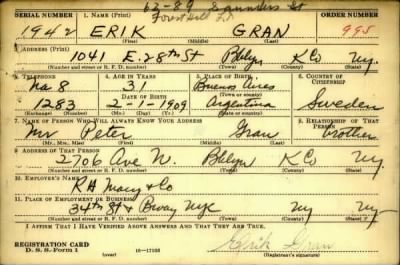 63-89 Saunders St
Forest Hill L.I.
SERIAL NUMBER 1. NAME (Print) ORDER NUMBER
1942 ERIK GRAN 995
(First) (Middle) (Last)
2. ADDRESS (Print)
1041 E. 28th St Bklyn K Co Ny.
(Number and street or R. F. D. number) (Town) (County) (State)
3. TELEPHONE 4. AGE IN YEARS 5. PLACE OF BIRTH 6. COUNTRY OF CITIZENSHIP
Na 8 31 Buenos Aires
DATE OF BIRTH (Town or county)
1283 2-1-1909 Argentina Sweden
(Exchange) (Number) (Mo.) (Day) (Yr.) (State or country)
7. NAME OF PERSON WHO WILL ALWAYS KNOW YOUR ADDRESS 8. RELATIONSHIP OF THAT PERSON
Mr Peter Gran brother
(Mr., Mrs., Miss) (First) (Middle) (Last)
9. ADDRESS OF THAT PERSON
2706 Ave N. Bklyn K Co Ny
(Number and street or R. F. D. number) (Town) (County) (State)
10. EMPLOYER'S NAME
R H Macy & Co
11. PLACE OF EMPLOYMENT OR BUSINESS
34th St & Bway Nyc Ny Ny
(Number and street or R. F. D. number) (Town) (County) (State)
I AFFIRM THAT I HAVE VERIFIED ABOVE ANSWERS AND THAT THEY ARE TRUE.
REGISTRATION CARD
D. S. S. Form 1 (over) 16-17105 Erik Gran
(Registrant's signature)